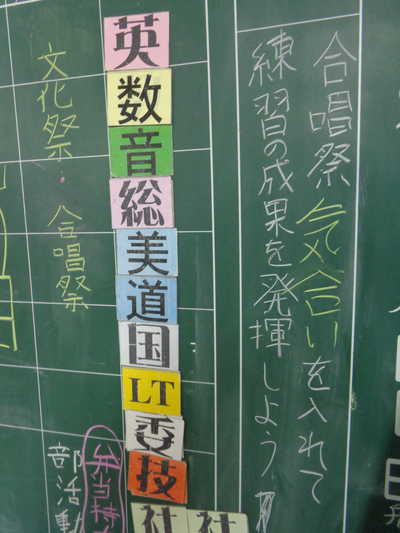 合唱祭 気合いを入れて
練習の成果を発揮しよう
英
数
音
総
美
道
国
LT
委
技
社 社
文化祭・合唱祭
弁当持
部活動